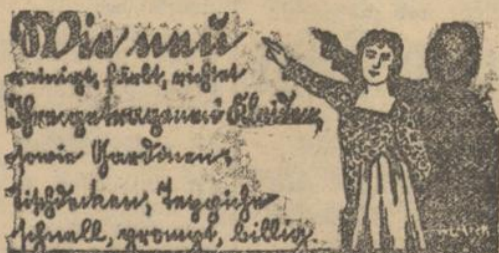 Wie neu
reinigt, färbt, richtet
Ihre getragenen Kleider,
sowie Gardinen,
Tischdecken, Teppiche
schnell, prompt, billig.